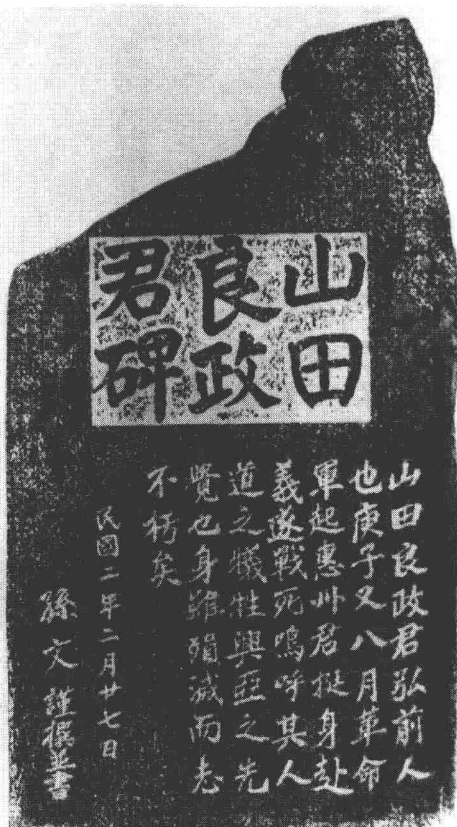 山田
良政
君碑
山田良政君弘前人
也庚子又八月革命
軍起惠州君挺身赴
義遂戰死嗚呼其人
道之犧牲興亞之先
覺也身雖殞滅而志
不朽矣
民國二年二月廿七日
孫文謹撰並書